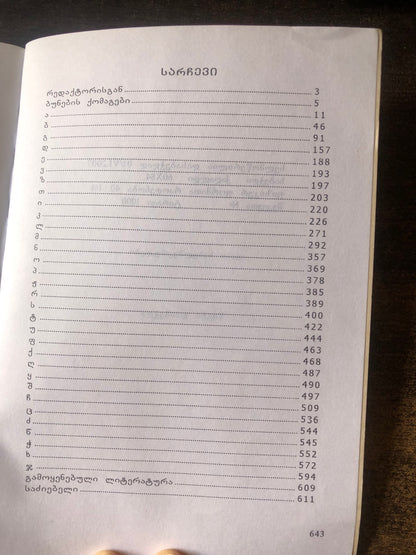 სარჩევი
რედაქტორისგან 3
ბუნების ქომაგები 5
ა 11
ბ 46
გ 91
დ 157
ე 188
ვ 193
ზ 197
თ 203
ი 220
კ 226
ლ 271
მ 292
ნ 357
ო 369
პ 378
ჟ 385
რ 389
ს 400
ტ 422
უ 444
ფ 463
ქ 468
ღ 487
ყ 490
შ 497
ჩ 509
ც 536
ძ 544
წ 545
ჭ 552
ხ 572
ჯ 594
გამოყენებული ლიტერატურა 609
საძიებელი 611
643